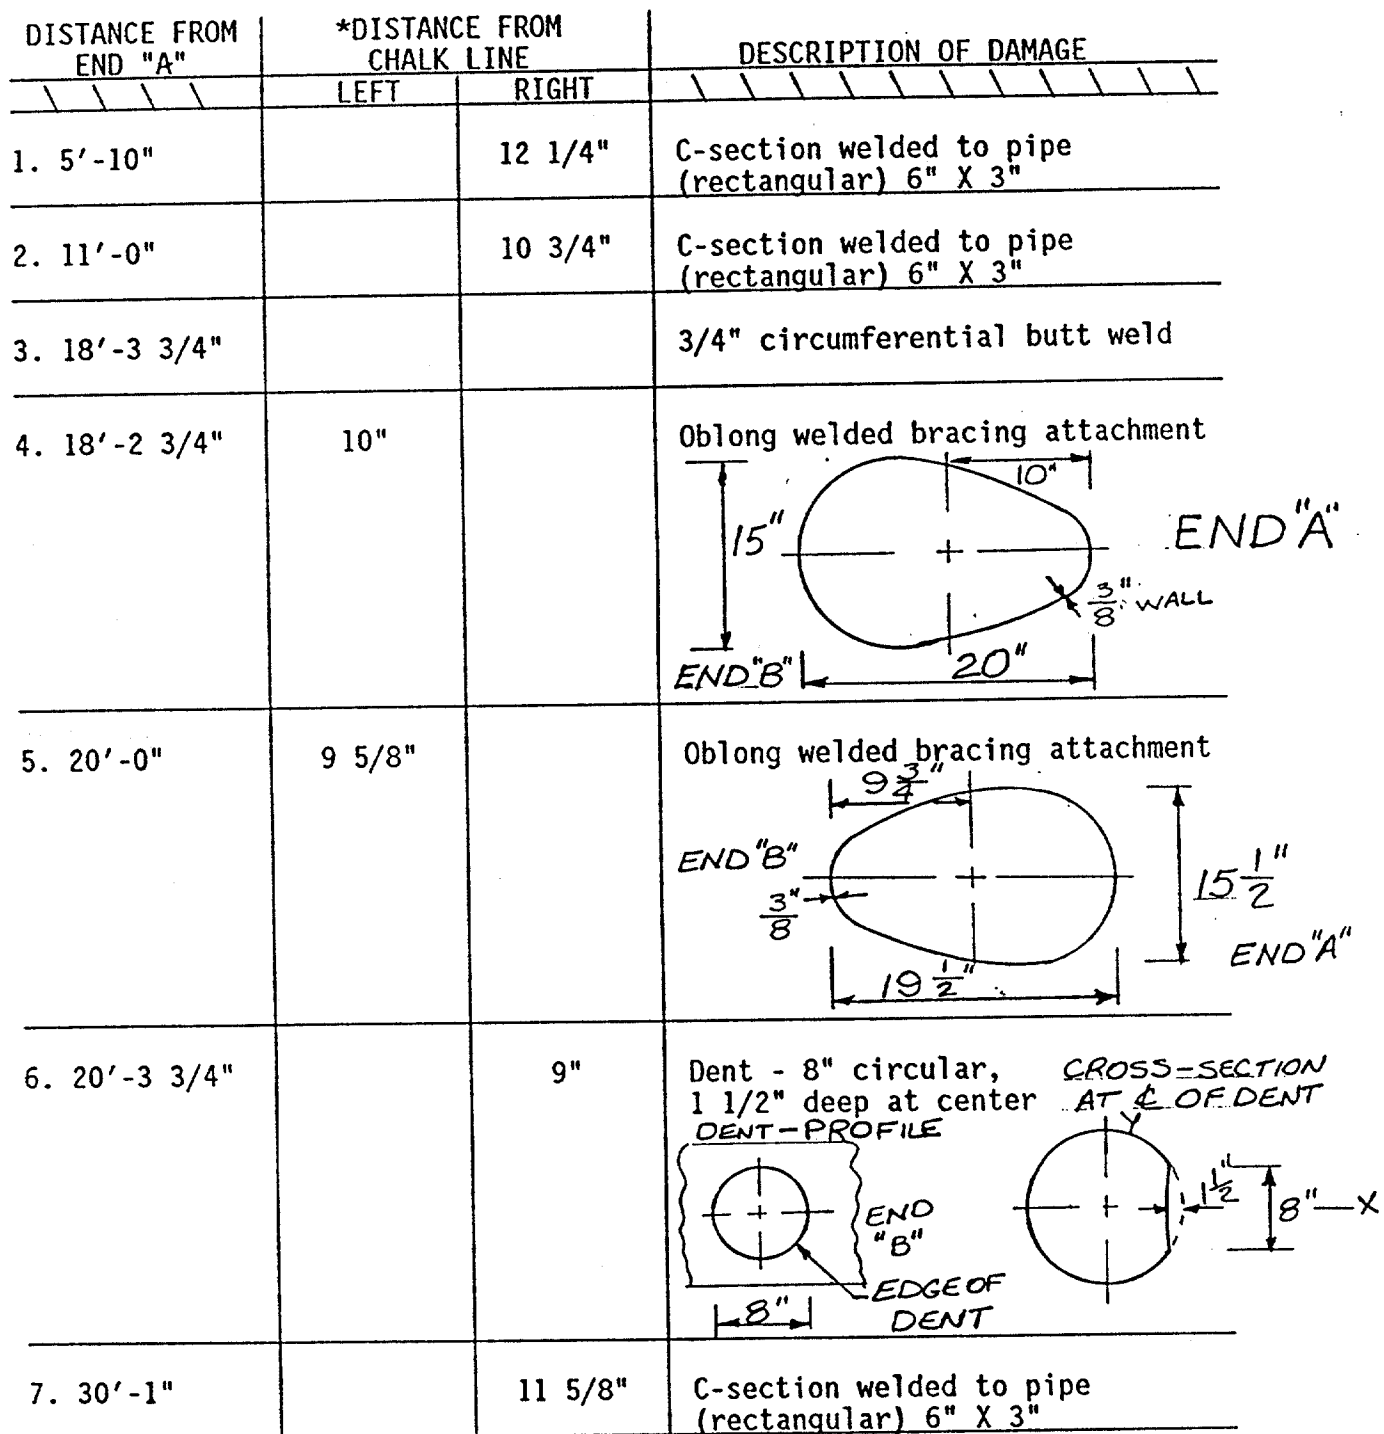 DISTANCE FROM END "A"
*DISTANCE FROM CHALK LINE
DESCRIPTION OF DAMAGE
LEFT RIGHT
1. 5'-10" 12 1/4" C-section welded to pipe
(rectangular) 6" X 3"
2. 11'-0" 10 3/4" C-section welded to pipe
(rectangular) 6" X 3"
3. 18'-3 3/4" 3/4" circumferential butt weld
4. 18'-2 3/4" 10" Oblong welded bracing attachment
10"
15"
END "A"
3/8" WALL
END "B"
20"
5. 20'-0" 9 5/8" Oblong welded bracing attachment
9 3/4"
END "B"
3/8"
15 1/2"
END "A"
19 1/2"
6. 20'-3 3/4" 9" Dent - 8" circular,
1 1/2" deep at center
CROSS-SECTION
AT ℄ OF DENT
DENT-PROFILE
Y
END
"B"
1 1/2"
8"—X
EDGE OF
DENT
8"
7. 30'-1" 11 5/8" C-section welded to pipe
(rectangular) 6" X 3"